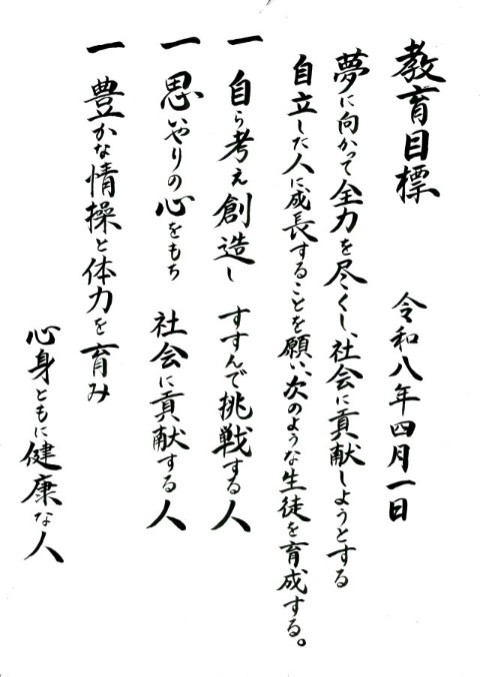 教育目標
令和八年四月一日
夢に向かって全力を尽くし、社会に貢献しようとする
自立した人に成長することを願い、次のような生徒を育成する。
一 自ら考え創造し すすんで挑戦する人
一 思いやりの心をもち 社会に貢献する人
一 豊かな情操と体力を育み
心身ともに健康な人